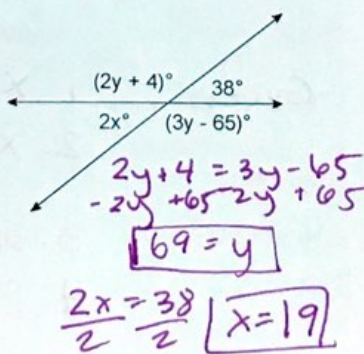 (2y + 4)° 38°
2x° (3y - 65)°
2y+4 = 3y-65
-2y +65 2y +65
69 = y
2x = 38 x=19
2 2